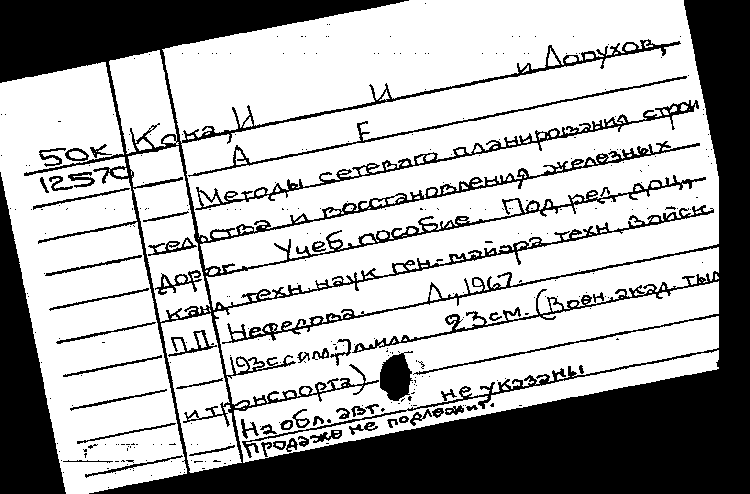 Кока, И И и Лопухов,
50К
12570
А Е
Методы сетевого планирования строи
тельства и восстановления железных
дорог. Учеб. пособие. Под ред. доц.,
канд. техн. наук ген.-майора техн. войск
П.П. Нефедова. Л., 1967.
193с. с илл; 23 см. (Воен. акад. тыл
и транспорта)
На обл. авт. не указаны
Продаже не подлежит.